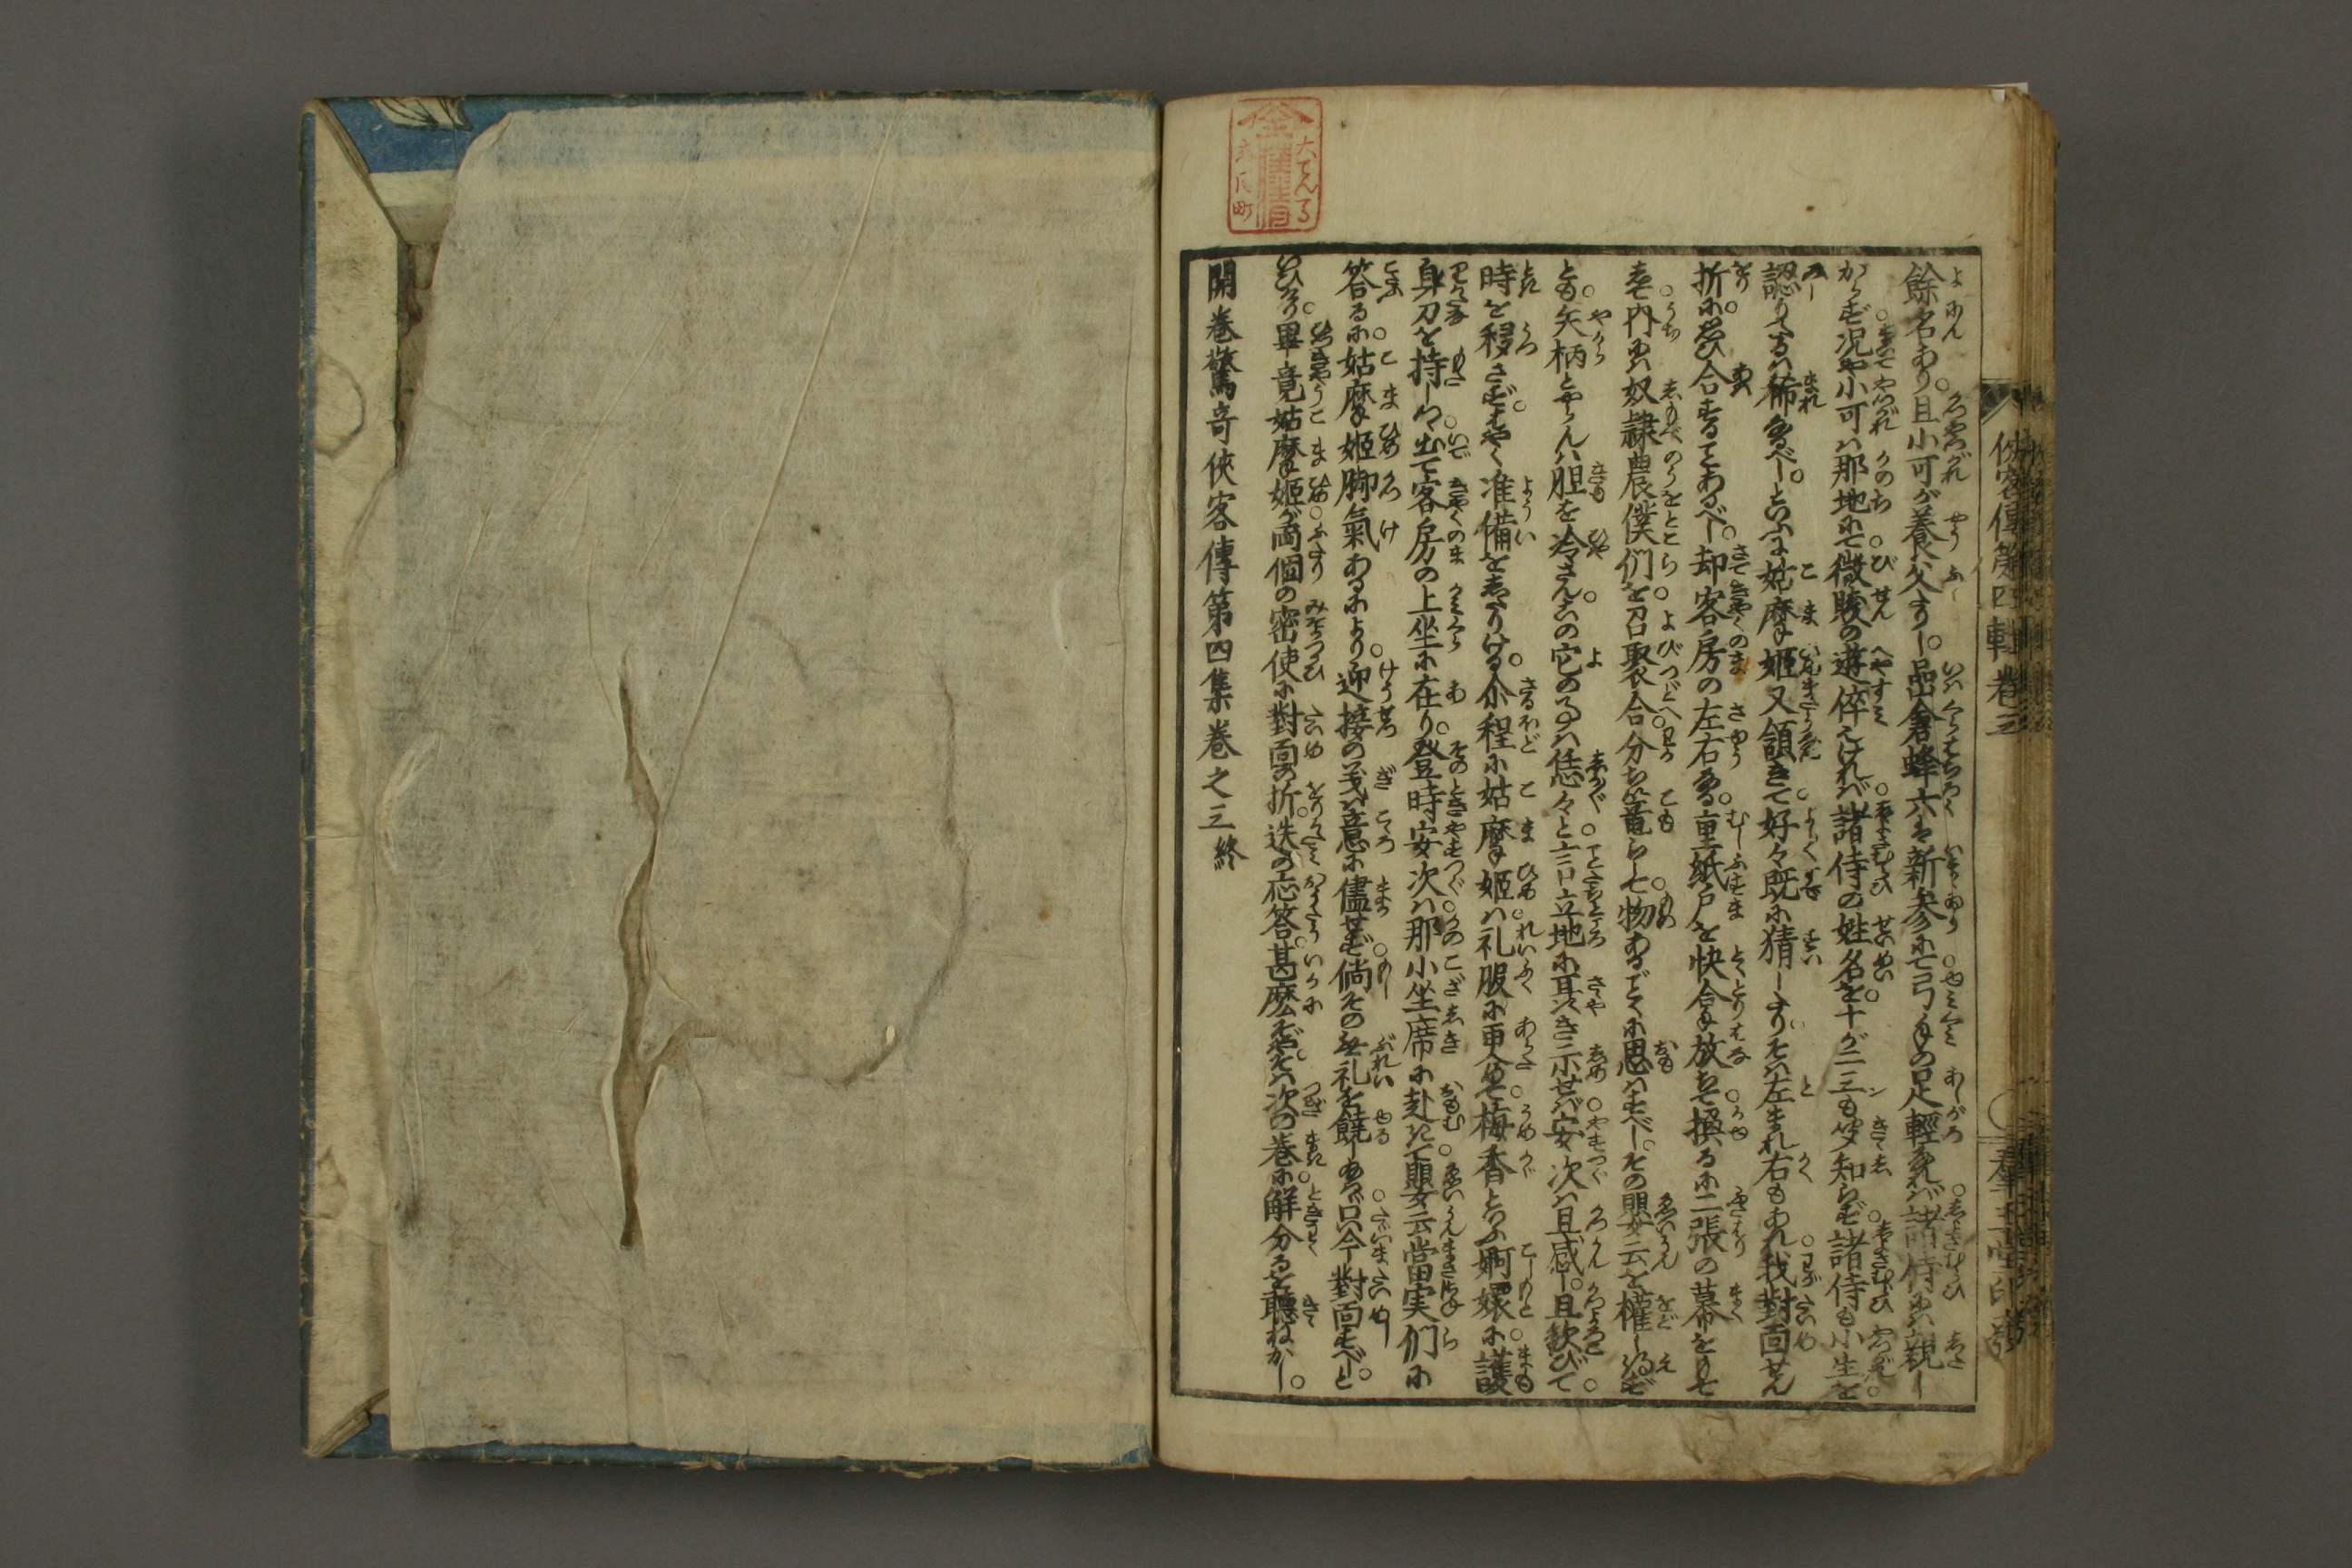 餘名あり。且小可が養父なりし。品倉蜂六は新参にて弓手の足輕なれば。諸侍には親し
からず。况や小可は那地にて。微賤の遊倅なければ。諸侍の姓名を。十が二三も聞知らず。諸侍も小生を
認りたるは稀なるべし。といふに姑摩姫又頷きて。好々既に猜したり。そは左まれ右もあれ。我對面せん
折に。思ひ合することあるべし。却客房の左右なる。重紙戸を快合放て。揆るに二張の幕をもて
し。内には奴隷農僕們を。召聚合。分ち篭らして。物あるごとくに思はすべし。その照云を權し得ず
とも。矢柄とやらんは胆を冷さん。その它の事は恁々と。言立地に耳語き示せば。安次は且感し。且歓びて。
時を移さず。はやく准備をしたりける。尒程に姑摩姫は。礼服に更めて。梅香といふ婢嬛に。護
身刀を持しつゝ。出て客房の上坐に在り。登時安次は。那小坐席に赴きて。照云當実們に
答るに。姑摩姫脚氣あるにより。迎接の義は意に儘せず。倘その無礼を饒しあらば。只今對面すべしと
いひけり。畢竟姑摩姫が。両個の密使に對面の折。迭の応答甚麼ぞや。そは次の巻に。解分るを聴ねかし。
開巻驚竒俠客傳第四集巻之三終
俠客傳第四輯巻三
群玉堂印發
大てんま